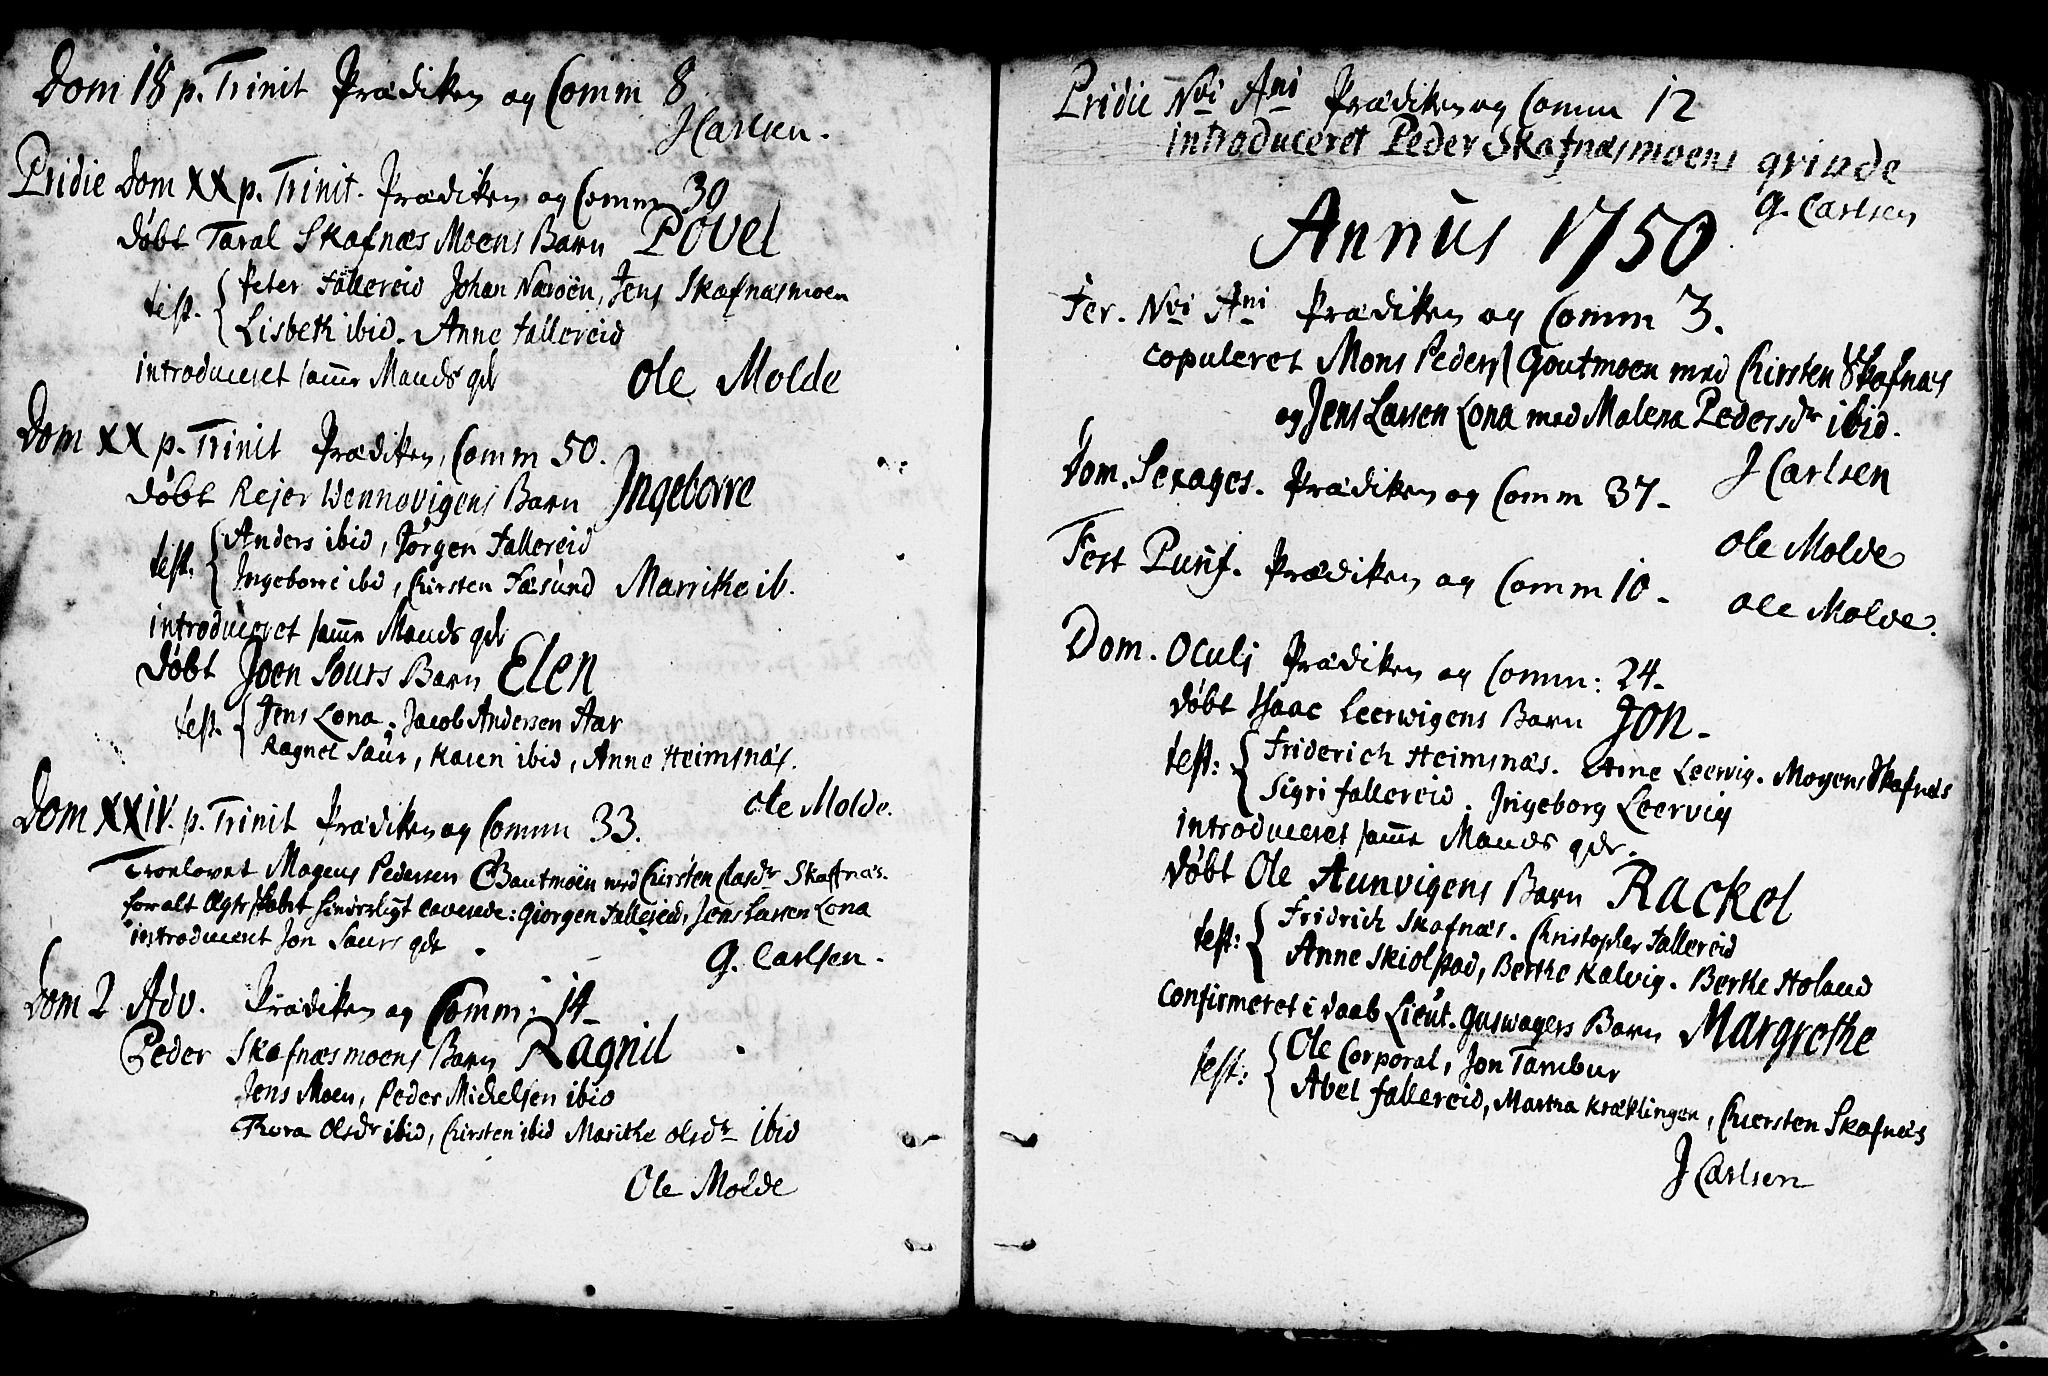 Dom 18 p. Trinit Prædiken og Comm 8
J Carlsen.
Pridie Dom XX p. Trinit. Prædiken og Comm 30
døbt Taral Skafnæs Moens Barn Povel
test. Peter Fallereid Johan Næröen, Jens Skafnæsmoen
Lisbeth ibid. Anne Fallereid
introduceret samme Mands qde
Ole Molde
Dom XX p. Trinit Prædiken, Comm 50.
døbt Rejer Wennevigens Barn Ingeborre
test. Anders ibid, Jörgen Fallereid
Ingeborre ibd, Kirsten Fæsund Marrike ib.
introduceret samme Mands qde
Døbt Joen Sours Barn Elen
test. Jens Lona. Jacob Andersen Aar
Ragnel Saur, Karen ibid, Anne Heimsnæs.
Ole Molde.
Dom XXIV. p. Trinit Prædiken og Comm 33.
Troelovet Mogens Pedersen Goutmoen med Kirsten Clasdr Skaffnæs.
for alt Ægteskabet caverede: Giørgen Fallereid, Jens Larsen Lona
introduceret Jon Saurs qde
G. Carlsen.
Dom 2 Adv. Prædiken og Comm: 14
Peder Skafnæsmoens Barn Ragnil
Jens Moen, Peder Michelsen ibid
Thora Olsdr ibid, Kirsten ibid Marithe olsdr ibid
Ole Molde
Pridie Nvi Ani Prædiken og Comm 12
introduceret Peder Skafnæsmoens qvinde
G. Carlsen
Annus 1750
Fer. Nvi Ani Prædiken og Comm 3.
copuleret Mons Peders Goutmoen med Kirsten Skafnæs
og Jens Larsen Lona med Malena Pedersdr ibid.
J Carlsen
Dom. Sexages. Prædiken og Comm 37
Ole Molde
Fest Purif. Prædiken og Comm 10
Ole Molde.
Dom. Oculi Prædiken og Comm: 24
døbt Isaac Leerwigens Barn Jon
test: Friderich Heimsnæs. Arne Leerwig. Mogens Skafnæs
Sigri fallereid. Ingeborg Leervig
introduceret samme Mands qde.
døbt Ole Aunvigens Barn Rackel
test: Fridrich Skafnæs. Christopher Fallereid
Anne Skiolstad, Berthe Kalvig. Berthe Holand
Confirmeret i daab Lieut. Guswagers Barn Margrethe
test: Ole Corporal, Jon Tambur
Abel fallereid, Martha Kræklingen, Chiersten Skafnæs
J Carlsen